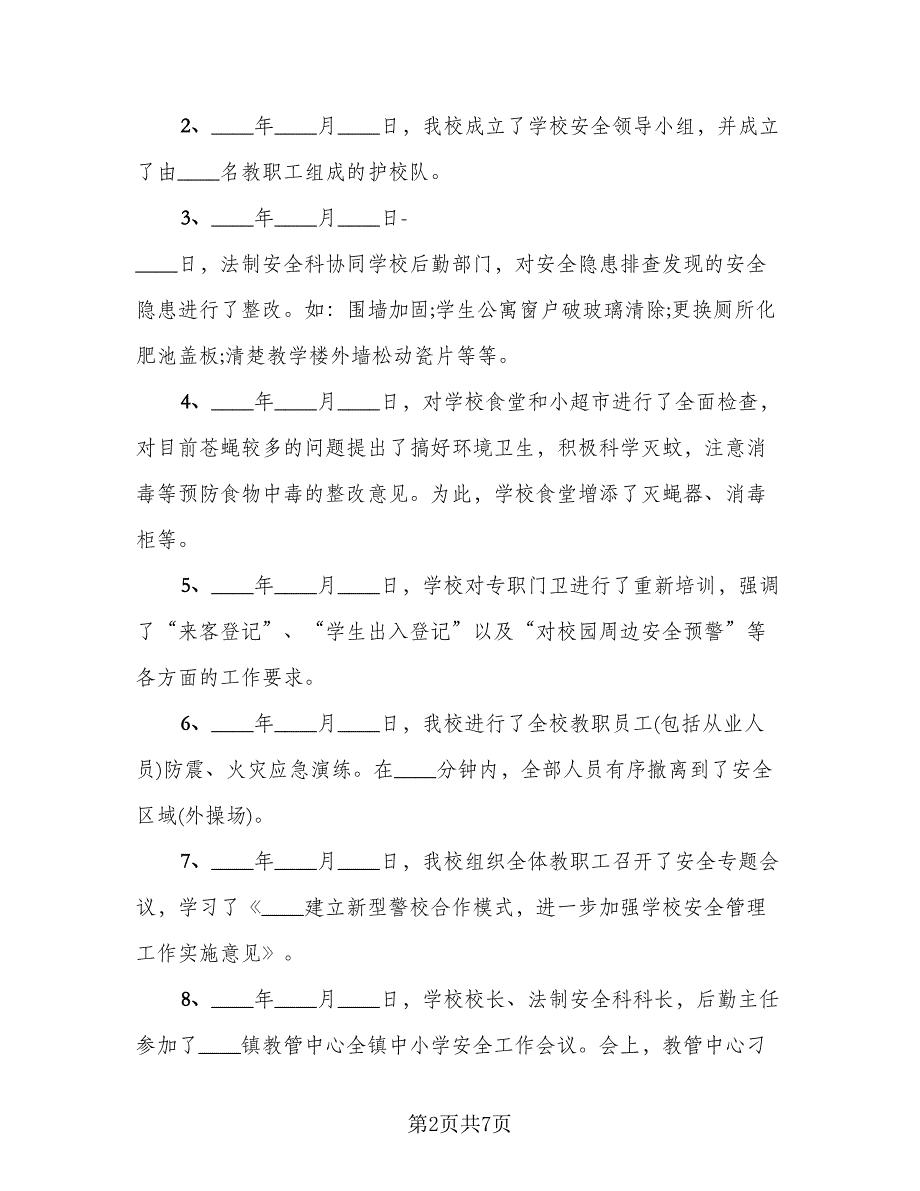 2、____年____月____日，我校成立了学校安全领导小组，并成立
了由____名教职工组成的护校队。
3、____年____月____日-
____日，法制安全科协同学校后勤部门，对安全隐患排查发现的安全
隐患进行了整改。如：围墙加固;学生公寓窗户破玻璃清除;更换厕所化
肥池盖板;清楚教学楼外墙松动瓷片等等。
4、____年____月____日，对学校食堂和小超市进行了全面检查，
对目前苍蝇较多的问题提出了搞好环境卫生，积极科学灭蚊，注意消
毒等预防食物中毒的整改意见。为此，学校食堂增添了灭蝇器、消毒
柜等。
5、____年____月____日，学校对专职门卫进行了重新培训，强调
了“来客登记”、“学生出入登记”以及“对校园周边安全预警”等
各方面的工作要求。
6、____年____月____日，我校进行了全校教职员工(包括从业人
员)防震、火灾应急演练。在____分钟内，全部人员有序撤离到了安全
区域(外操场)。
7、____年____月____日，我校组织全体教职工召开了安全专题会
议，学习了《____建立新型警校合作模式，进一步加强学校安全管理
工作实施意见》。
8、____年____月____日，学校校长、法制安全科科长，后勤主任
参加了____镇教管中心全镇中小学安全工作会议。会上，教管中心刁
第2页共7页